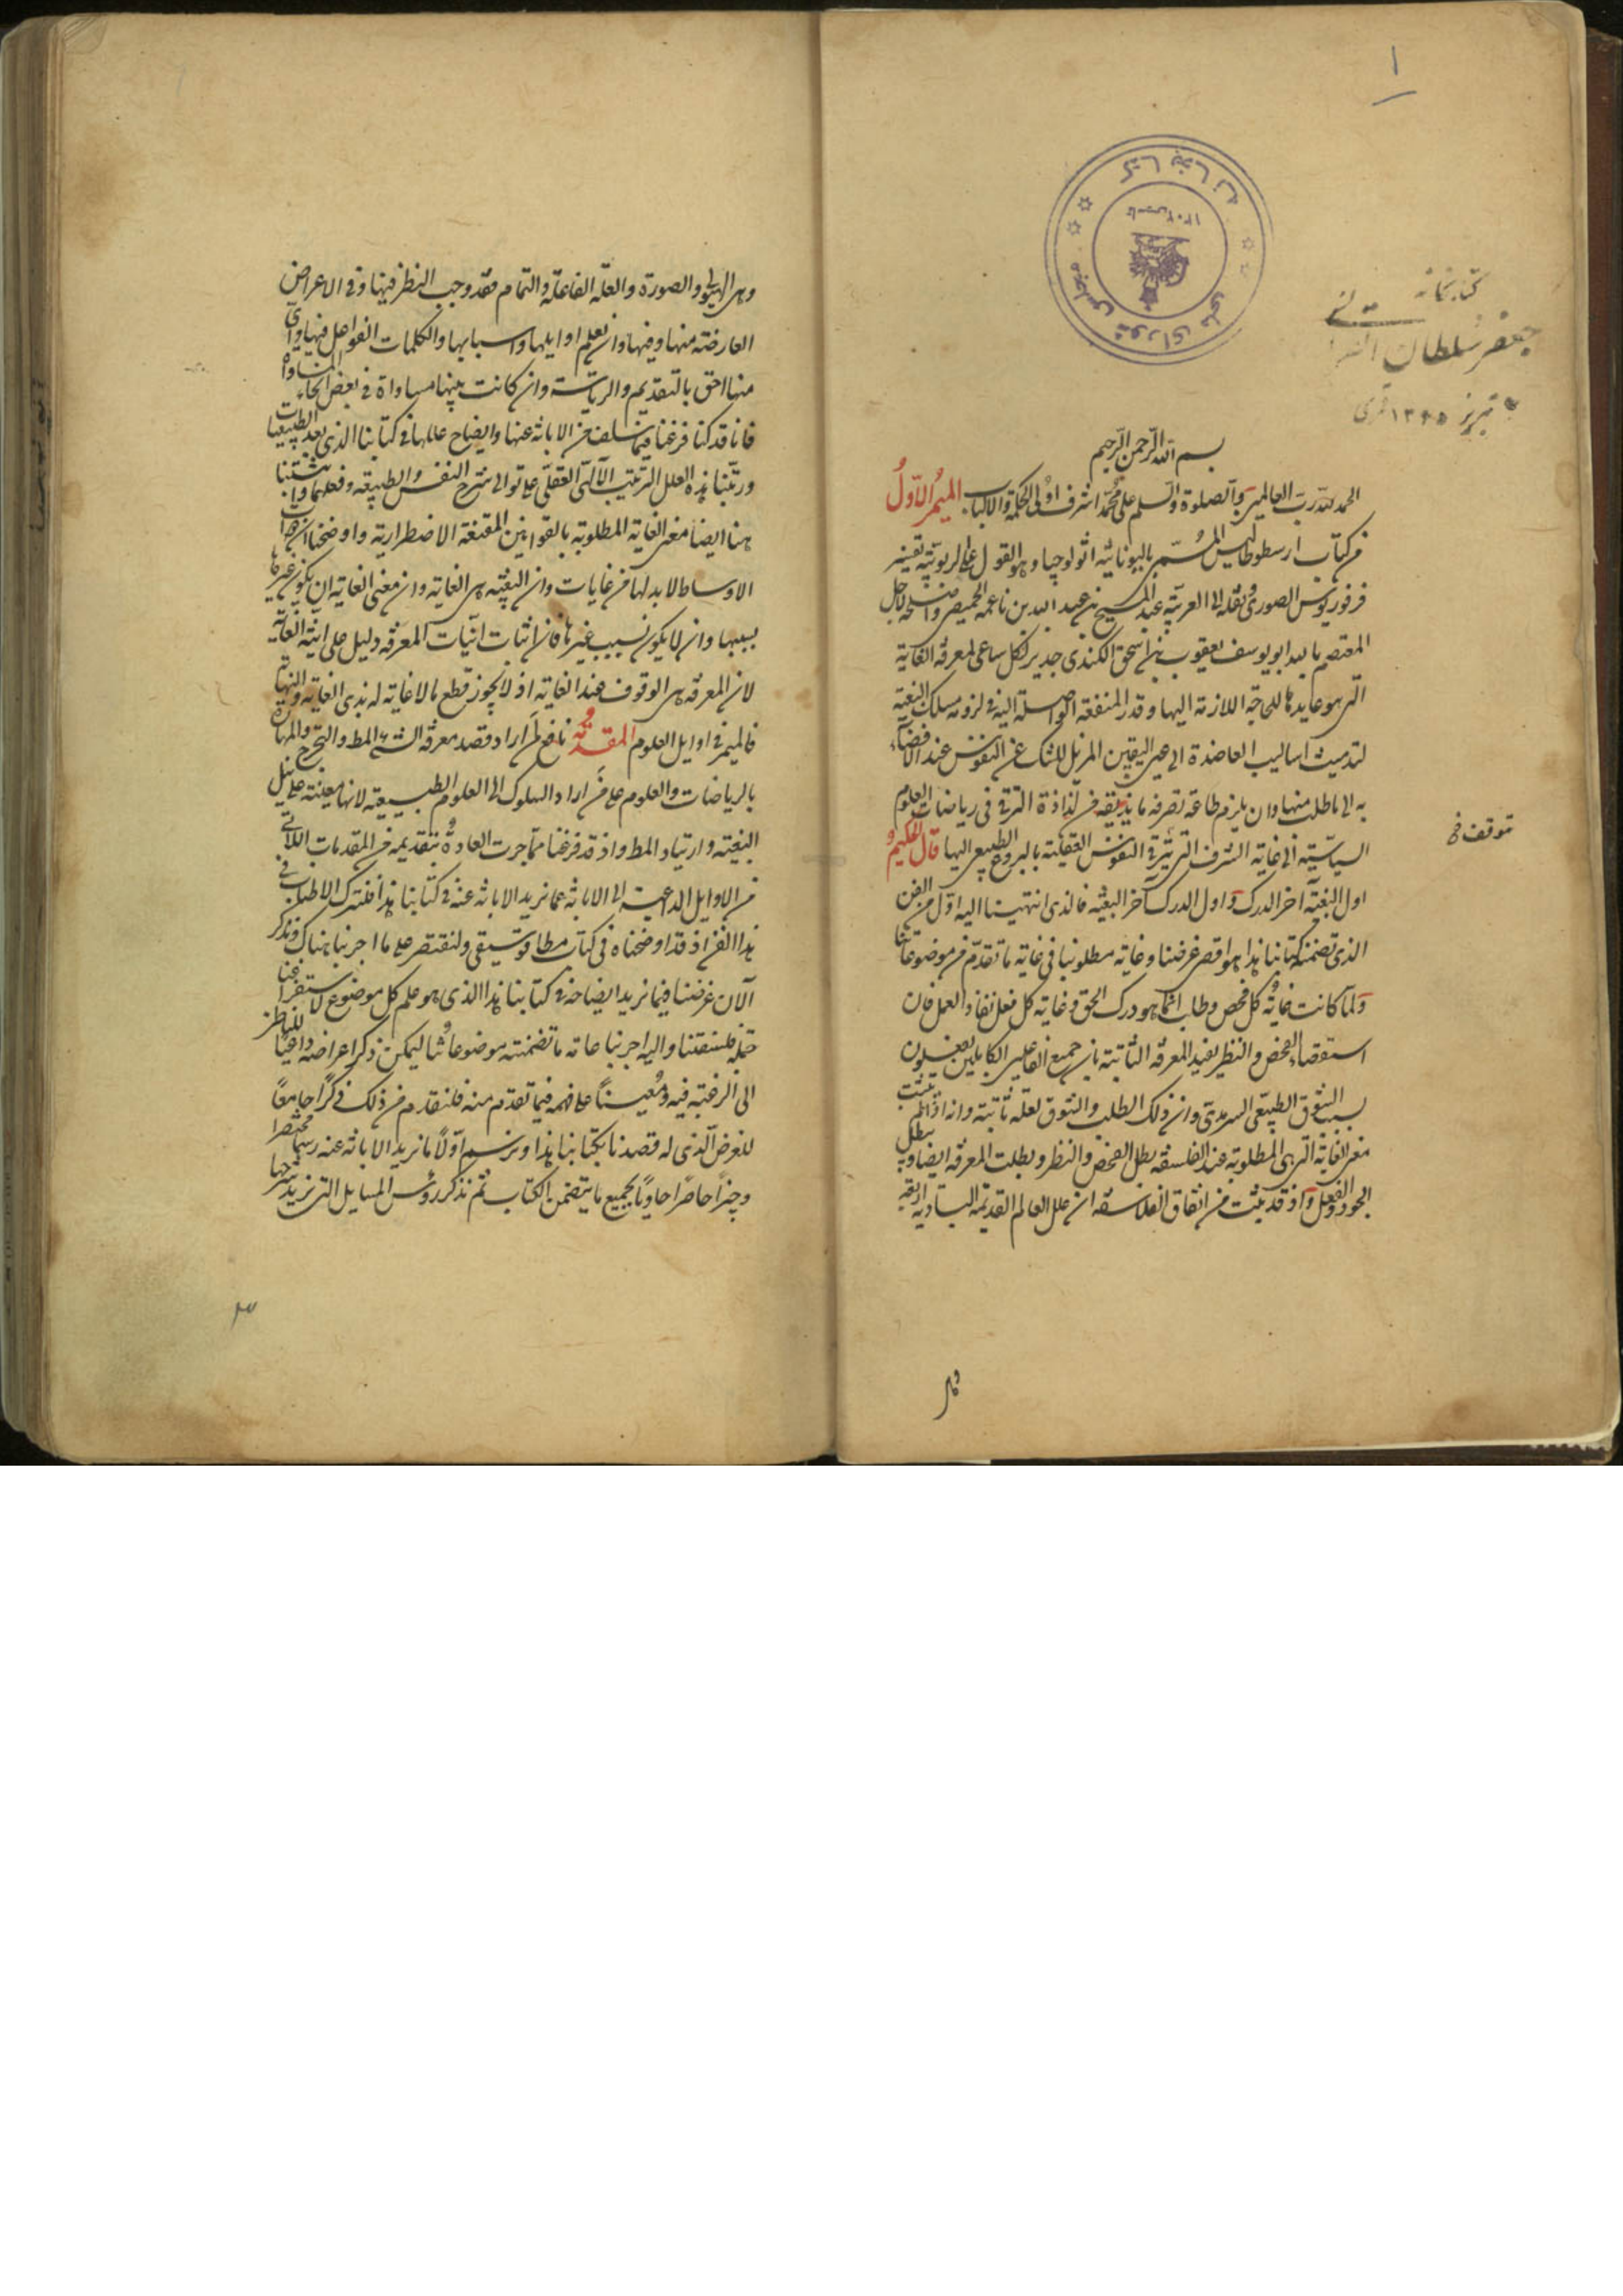 ١
کتابخانه
مجلس شورای ملی
١٣٠٢
کتابخانه
جعفر سلطان القرائی
تبریز ١٣٤٥ قمری
بسم الله الرحمن الرحيم
الحمد لله رب العالمين والصلوة والسلم على محمد اشرف اولى الحكمة والالباب الميمر الاول
من كتاب ارسطوطاليس المسمى باليونانية اثولوجيا وهو القول على الربوبية تفسير
فرفوريوس الصورى ونقله الى العربية عبد المسيح بن عبد الله بن ناعمه الحمصى واصلحه لاجل
المعتصم بالله ابو يوسف يعقوب بن اسحق الكندى جدير لكل ساعى لمعرفة الغاية
التى هو عايدها للحاجة اللازمة اليها وقدر المنفعة الواصلة اليه فى لزومه مسلك البغية
لتدميث اساليب العاضدة الى عين اليقين المزيل للشك عن النفوس عند الافضاء
به الى ما طلب منها وان يلزم طاعة تصرفه ما يذيقه من لذاذة الترقى فى رياضات العلوم
السياسية الى غاية الشرف التى ترقى النفوس العقلية بالنزوع الطبيعى اليها قال الحكيم
اول البغية آخر الدرك واول الدرك آخر البغية فالذى انتهينا اليه اول من الفن
الذى تضمنه كتابنا هذا هو اقصى غرضنا وغاية مطلوبنا فى غاية ما تقدم من موضوعاتنا
ولما كانت غاية كل فحص وطلب انما هو درك الحق وغاية كل فعل نفاذ العمل فان
استقصاء الفحص والنظر يفيد المعرفة الثابتة بان جميع الفاعلين الكاملين يفعلون
بسبب الشوق الطبيعى السرمدى وان ذلك الطلب والشوق لعلة ثانية وانه اذا لم يثبت
معنى الغاية التى هى المطلوبة عند الفلسفة بطل الفحص والنظر وبطلت المعرفة ايضا وبطل
الجود والفعل واذ قد ثبت من اتفاق الفلاسفة ان علل العالم القديمة البادية اربعة
توقف فى
وهى
وهى الهيولى والصورة والعلة الفاعلة والتمام فقد وجب النظر فيها وفى الاعراض
العارضة منها وفيها وان تعلم اوايلها واسبابها والكلمات الفواعل فيها واى
منها احق بالتقديم والرياسة وان كانت بينها مساواة فى بعض انحاء المساواة
فانا قد كنا فرغنا فيما سلف من الابانة عنها وايضاح عللها فى كتابنا الذى بعد الطبيعيات
ورتبنا هذه العلل الترتيب الالهى العقلى على توالى شرح النفس والطبيعة وفعلها واثبتنا
هنا ايضا معنى الغاية المطلوبة بالقوانين المقنعة الاضطرارية واوضحنا ان ذوات
الاوساط لا بد لها من غايات وان البغية هى الغاية وان معنى الغاية ان يكون غيرها
بسببها وان لا يكون بسبب غيرها فان اثبات انيات المعرفة دليل على انية الغاية
لان المعرفة هى الوقوف عند الغاية اذ لا يجوز قطع ما لا غاية له بذى الغاية والنهاية
فالميمر فى اوايل العلوم المقدمة نافع لمن اراد قصد معرفة الشى المط والتخرج والمهارة
بالرياضات والعلوم على من اراد السلوك الى العلوم الطبيعية لانها معينة على نيل
البغية وارتياد المط واذ قد فرغنا مما جرت العادة بتقديمه من المقدمات اللاتى
من الاوايل الداعية الى الابانة عما نريد الابانة عنه فى كتابنا هذا فلنترك الاطناب فى
هذا الفن اذ قد اوضحناه فى كتاب مطاطافوسيقى ولنقتصر على ما اجرينا هناك ونذكر
الآن غرضنا فيما نريد ايضاحه فى كتابنا هذا الذى هو علم كلى موضوع لاستفراغنا
جملة فلسفتنا واليه اجرينا عامة ما تضمنته موضوعاتنا ليكون ذكر اغراضه داعيا للناظر
الى الرغبة فيه ومعينا على فهمه فيما تقدم منه فلنقدم من ذلك ذكرا جامعا
للغرض الذى له قصدنا بكتابنا هذا ونرسم اولا ما نريد الابانة عنه رسما مختصرا
وجيزا حاصرا حاويا لجميع ما يتضمن الكتاب ثم نذكر رؤس المسايل التى نريد شرحها